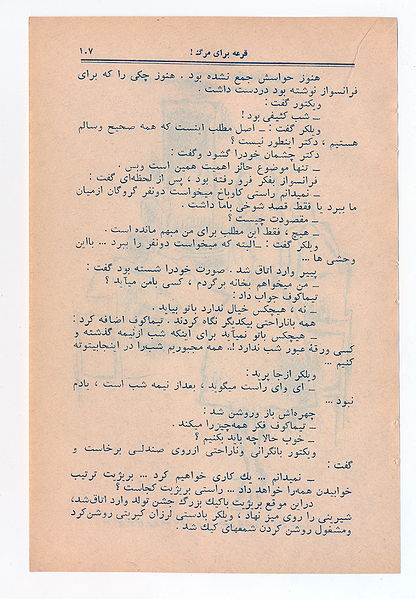 قرعه برای مرگ !
۱۰۷
هنوز حواسش جمع نشده بود . هنوز چکی را که برای
فرانسواز نوشته بود دردست داشت .
ویکتور گفت :
ــ شب کثیفی بود !
ویلکر گفت : ــ اصل مطلب اینست که همه صحیح وسالم
هستیم ، دکتر اینطور نیست ؟
دکتر چشمان خودرا گشود وگفت :
ــ تنها موضوع حائز اهمیت همین است وبس .
فرانسواز بفکر فرو رفته بود ، پس از لحظه‌ای گفت :
ــ نمیدانم راستی کاوباخ میخواست دونفر گروگان ازمیان
ما ببرد یا فقط قصد شوخی باما داشت .
ــ مقصودت چیست ؟
ــ هیچ ، فقط این مطلب برای من مبهم مانده است .
ویلکر گفت : ــ البته که میخواست دونفر را ببرد ... بااین
وحشی ها ...
پییر وارد اتاق شد . صورت خودرا شسته بود گفت :
ــ من میخواهم بخانه برگردم ، کسی بامن میآید ؟
تیماکوف جواب داد :
ــ نه ، هیچکس خیال ندارد باتو بیاید .
همه باناراحتی بیکدیگر نگاه کردند . تیماکوف اضافه کرد :
ــ هیچکس باتو نمیآید برای اینکه شب ازنیمه گذشته و
کسی ورقهٔ عبور شب ندارد !. همه مجبوریم شب‌را در اینجابیتوته
کنیم ...
ویلکر ازجا پرید :
ــ ای وای راست میگوید ، بعداز نیمه شب است ، یادم
نبود ...
چهره‌اش باز وروشن شد :
ــ تیماکوف فکر همه‌چیزرا میکند .
ــ خوب حالا چه باید بکنیم ؟
ویکتور بانگرانی وناراحتی ازروی صندلی برخاست و
گفت :
ــ نمیدانم ... یك کاری خواهیم کرد ... بریژیت ترتیب
خوابیدن همه‌را خواهد داد ... راستی بریژیت کجاست ؟
دراین موقع بریژیت باکیك بزرگ جشن تولد وارد اتاق‌شد،
شیرینی را روی میز نهاد ، ویلکر بادستی لرزان کبریتی روشن‌کرد
ومشغول روشن کردن شمعهای کیك شد .